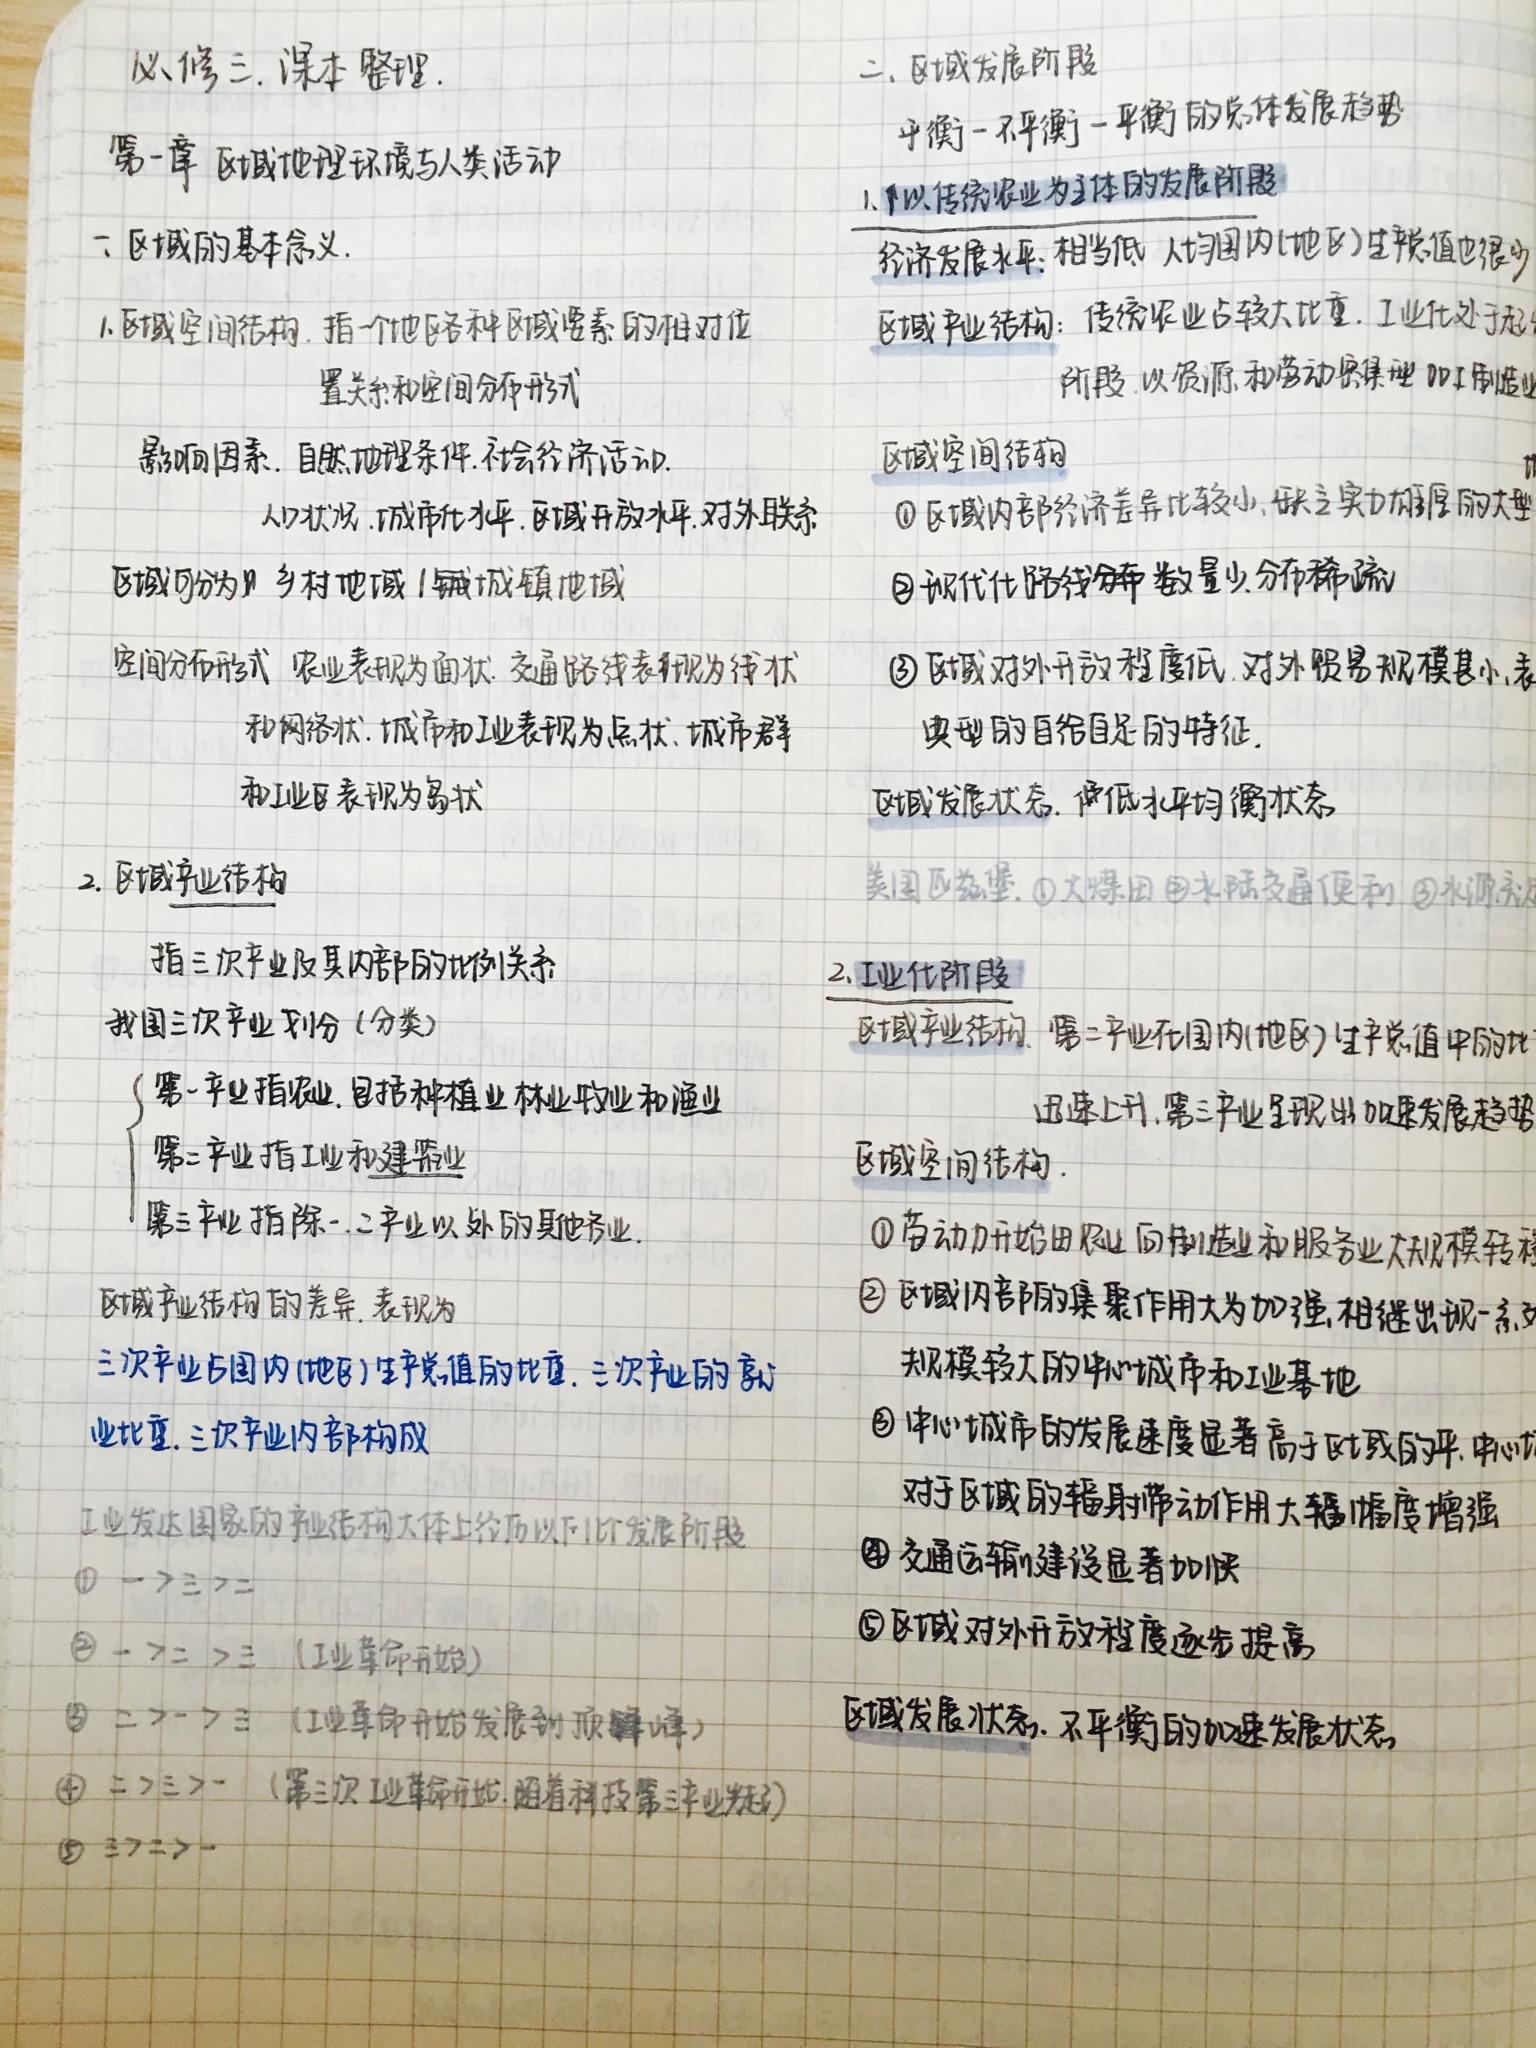 必修三.课本整理.
第一章 区域地理环境与人类活动
一、区域的基本含义.
1.区域空间结构.指一个地区各种区域要素的相对位
置关系和空间分布形式
影响因素.自然地理条件.社会经济活动.
人口状况.城市化水平.区域开放水平.对外联系
区域可分为 乡村地域 城镇地域
空间分布形式 农业表现为面状.交通路线表现为线状
和网络状.城市和工业表现为点状、城市群
和工业区表现为岛状
2.区域产业结构
指三次产业及其内部的比例关系
我国三次产业划分(分类)
第一产业指农业.包括种植业林业牧业和渔业
第二产业指工业和建筑业
第三产业指除一.二产业以外的其他各业.
区域产业结构的差异.表现为
三次产业占国内(地区)生产总值的比重.三次产业的就
业比重.三次产业内部构成
工业发达国家的产业结构大体上经历以下几个发展阶段
① 一>三>二
② 一>二>三 (工业革命开始)
③ 二>一>三 (工业革命开始发展到顶峰)
④ 二>三>一 (第三次工业革命开始.随着科技第三产业发起)
⑤ 三>二>一
二、区域发展阶段
平衡一不平衡一平衡的总体发展趋势
1.以传统农业为主体的发展阶段
经济发展水平:相当低 人均国内(地区)生产总值也很少
区域产业结构:传统农业占较大比重.工业化处于起
阶段.以资源和劳动密集型加工制造业
区域空间结构
①区域内部经济差异比较小、缺乏实力雄厚的大型
②现代化路线分布数量少.分布稀疏
③区域对外开放程度低.对外贸易规模甚小、表
典型的自给自足的特征.
区域发展状态.低水平均衡状态
美国匹兹堡.①大煤田②水陆交通便利 ③水源充
2.工业化阶段
区域产业结构.第二产业在国内(地区)生产总值中的比
迅速上升.第三产业呈现出加速发展趋势
区域空间结构.
①劳动力开始由农业向制造业和服务业大规模转移
②区域内部的集聚作用大为加强.相继出现一系列
规模较大的中心城市和工业基地
③中心城市的发展速度显著高于区域的平.中心城
对于区域的辐射带动作用大幅度增强
④交通运输建设显著加快
⑤区域对外开放程度逐步提高
区域发展状态.不平衡的加速发展状态